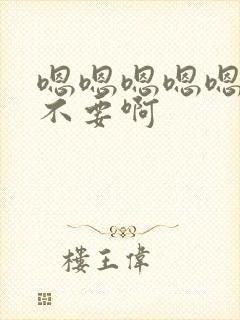 嗯嗯嗯嗯嗯
不要啊
樓王偉